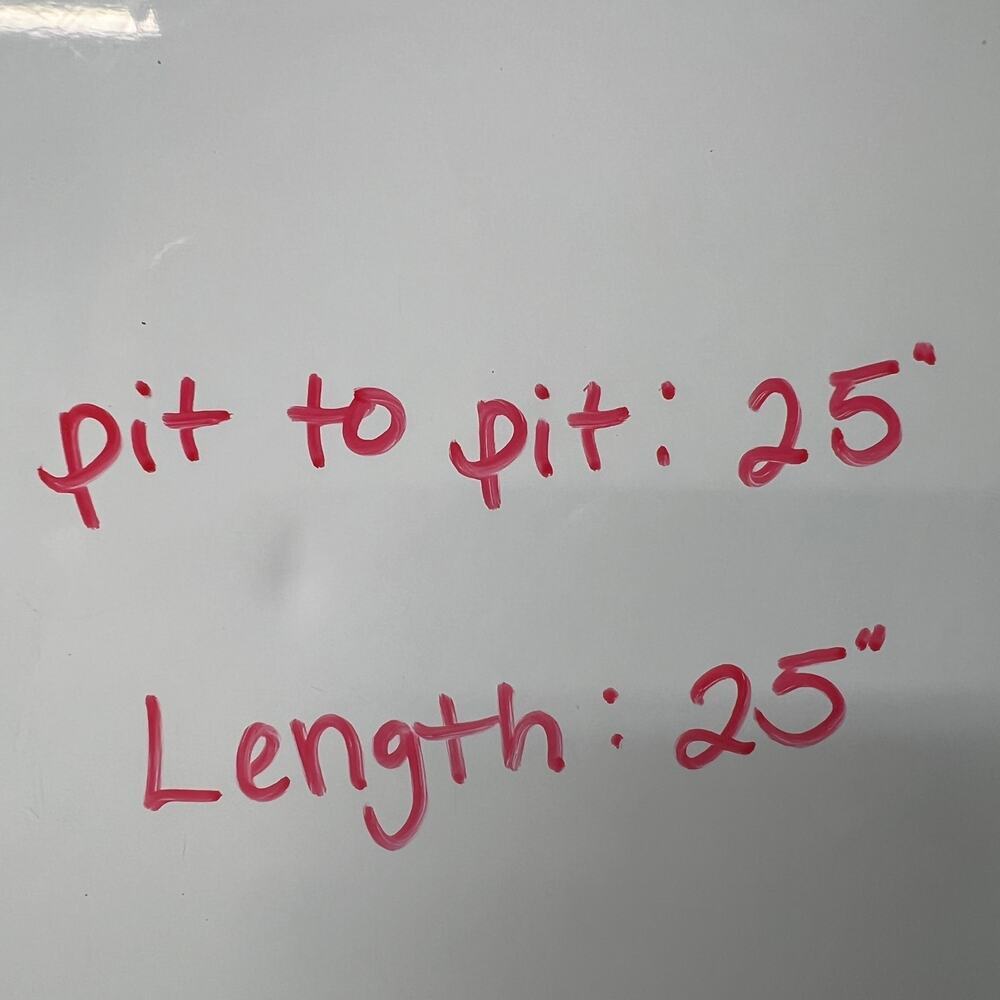 pit to pit: 25"
Length: 25"